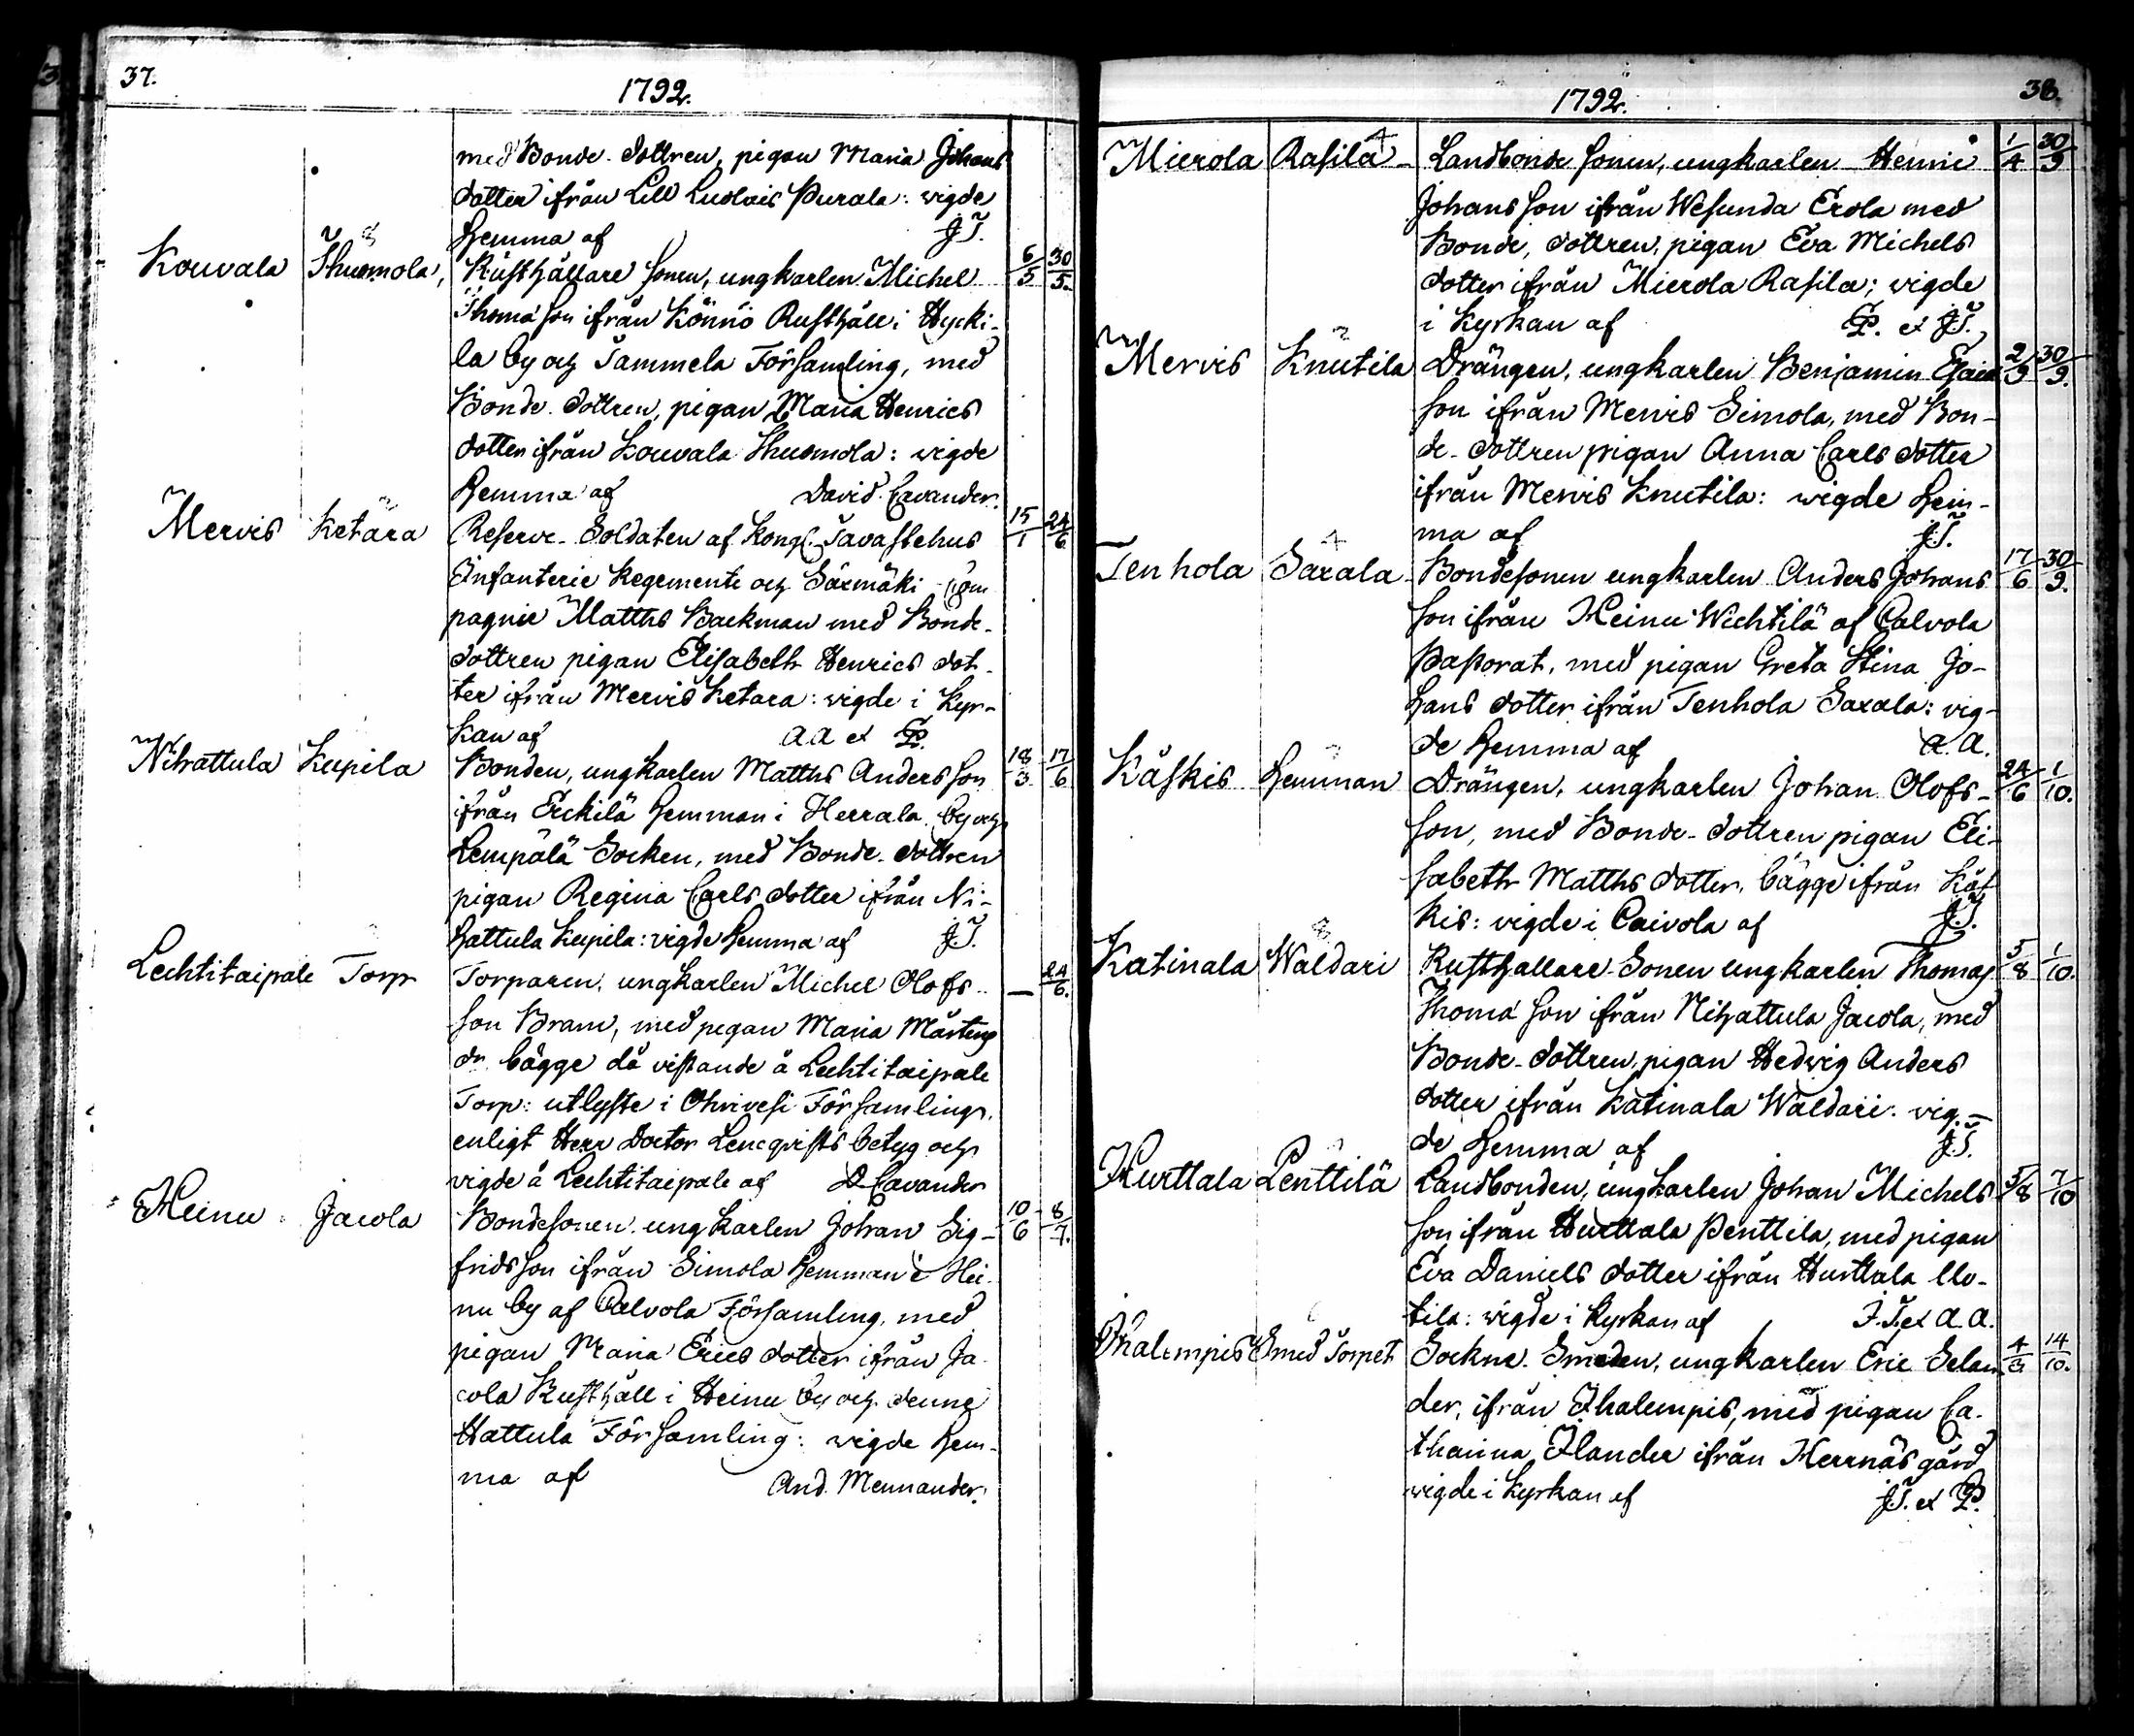 37.
1792.
med Bonde dottren, pigan Maria Johans
dotter ifrån Lill Luolais Purala: vigde
hemma af J.T.
Kouvala Thuomola, Rusthållare sonen, ungkarlen Michel 6/5 30/5.
Thomæ son ifrån Könnö Rusthåll i Hycki-
la by och Tammela Församling, med
Bonde dottren, pigan Maria Henrics
dotter ifrån Kouvala Thuomola: vigde
hemma af David Cavander.
Mervis Ketara Reserve-Soldaten af Kongl. Tavastehus 15/1 24/6
Infanterie Regemente och Säxmäki Com
pagnie Matths Backman med Bonde-
dottren pigan Elisabeth Henrics dot-
ter ifrån Mervis Ketara: vigde i Kyr-
kan af A A et P.
Nihattula Kupila Bonden, ungkarlen Matths Anders son 18/3 17/6
ifrån Erkilä hemman i Herrala by och
Lempälä Socken, med Bonde-dottren
pigan Regina Carls dotter ifrån Ni-
hattula Kupila: vigde hemma af J.T.
Lechtitaipale Torp Torparen, ungkarlen Michel Olofs- — 24/6.
son Bram, med pigan Maria Mårtens
dr bägge då vistande å Lechtitaipale
Torp: utlyste i Ohrivesi Församling,
enligt Herr Doctor Lencqvists betyg och
vigde å Lechtitaipale af D Cavander
Heinu Jacola Bondesonen ungkarlen Johan Sig- 10/6 8/7.
frids son ifrån Simola hemman i Hei-
nu by af Calvola Församling, med
pigan Maria Erics dotter ifrån Ja-
cola Rusthåll i Heinu by och denne
Hattula Församling: vigde hem-
ma af And. Mennander.
38.
1792.
Mierola Rasila Landbonde sonen, ungkarlen Henric 1/4 30/9
Johans son ifrån Wesunda Erola med
Bonde, dottren, pigan Eva Michels
dotter ifrån Mierola Rasila; vigde
i Kyrkan af P. et J.T.
Mervis Knutila Drängen, ungkarlen Benjamin Esaiæ 2/9 30/9.
son ifrån Mervis Simola, med Bon-
de-dottren pigan Anna Carls dotter
ifrån Mervis Knutila: vigde hem-
ma af J.T.
Tenhola Saxala Bondesonen ungkarlen Anders Johans 17/6 30/9.
son ifrån Heinu Wichtilä af Calvola
Pastorat, med pigan Greta Stina Jo-
hans dotter ifrån Tenhola Saxala: vig-
de hemma af A. A.
Käskis hemman Drängen, ungkarlen Johan Olofs- 24/6 1/10.
son, med Bonde-dottren pigan Eli-
sabeth Matths dotter, bägge ifrån Käs
kis: vigde i Paivola af J.T.
Katinala Waldari Rusthållare-Sonen ungkarlen Thomas 5/8 1/10.
Thomæ son ifrån Nihattula Jacola, med
Bonde-dottren, pigan Hedwig Anders
dotter ifrån Katinala Waldari: vig-
de hemma af J.T.
Hurttala Penttilä Landbonden, ungkarlen Johan Michels 5/8 7/10
son ifrån Hurttala Penttila, med pigan
Eva Daniels dotter ifrån Hurttala Uo-
tila: vigde i Kyrkan af J.T. et A. A.
Ihalempis Smed Torpet Sockne-Smeden, ungkarlen Eric Selan 4/3 14/10.
der, ifrån Ihalempis, med pigan Ca-
tharina Ilander ifrån Herrnäs gård
vigde i Kyrkan af J.T. et P.